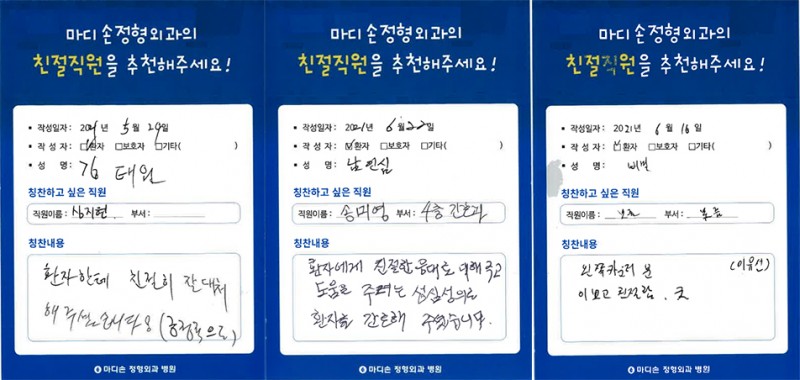 마디 손정형외과의
친절직원을 추천해주세요!
• 작성일자 : 2021년 5월 29일
• 작 성 자 : ☑환자 □보호자 □기타( )
• 성 명 : 김태원
칭찬하고 싶은 직원
직원이름 : 심지현 부서 :
칭찬내용
환자한테 친절히 잘 대처
해 주셨습니다 (긍정적으로)
마디손 정형외과 병원
마디 손정형외과의
친절직원을 추천해주세요!
• 작성일자 : 2021년 6월 22일
• 작 성 자 : ☑환자 □보호자 □기타( )
• 성 명 : 남연심
칭찬하고 싶은 직원
직원이름 : 송미영 부서 : 4층 간호과
칭찬내용
환자에게 친절한 응대로 대해 주고
도움을 주려는 성실성의로
환자를 간호해 주었습니다.
마디손 정형외과 병원
마디 손정형외과의
친절직원을 추천해주세요!
• 작성일자 : 2021년 6월 16일
• 작 성 자 : ☑환자 □보호자 □기타( )
• 성 명 : 비밀
칭찬하고 싶은 직원
직원이름 : 부서 :
칭찬내용
분 (이유선)
이쁘고 친절함. 굿
마디손 정형외과 병원